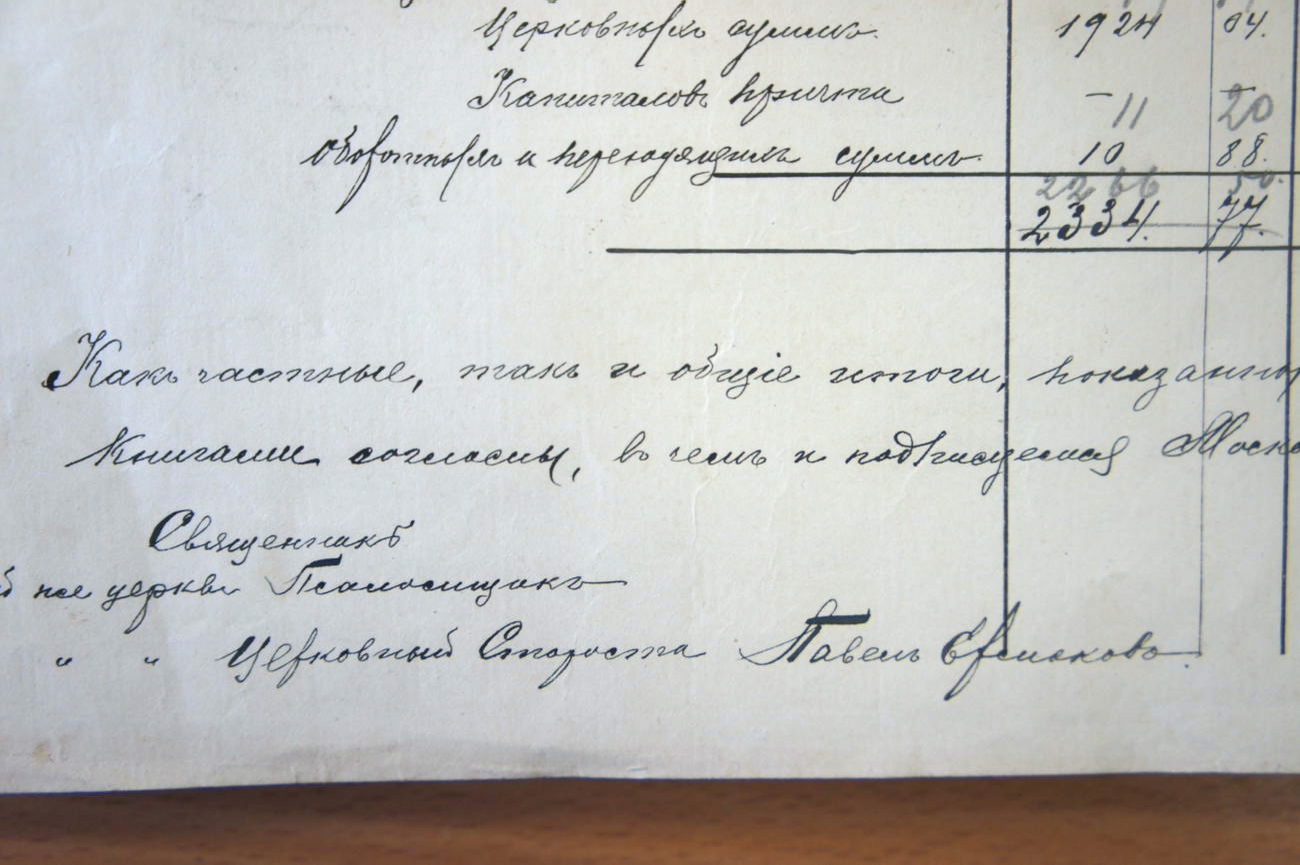 Церковныхъ суммъ. 1924 04.
Капиталовъ причта — 11 — 20
Оборотныхъ и переходящихъ суммъ. 10 88.
2266 50.
2334. 77.
Какъ частные, такъ и общіе итоги, показанны
книгами согласны, въ чемъ и подписуемся Моск
Священникъ
й же церкви Псаломщикъ
" " Церковный Староста Павелъ